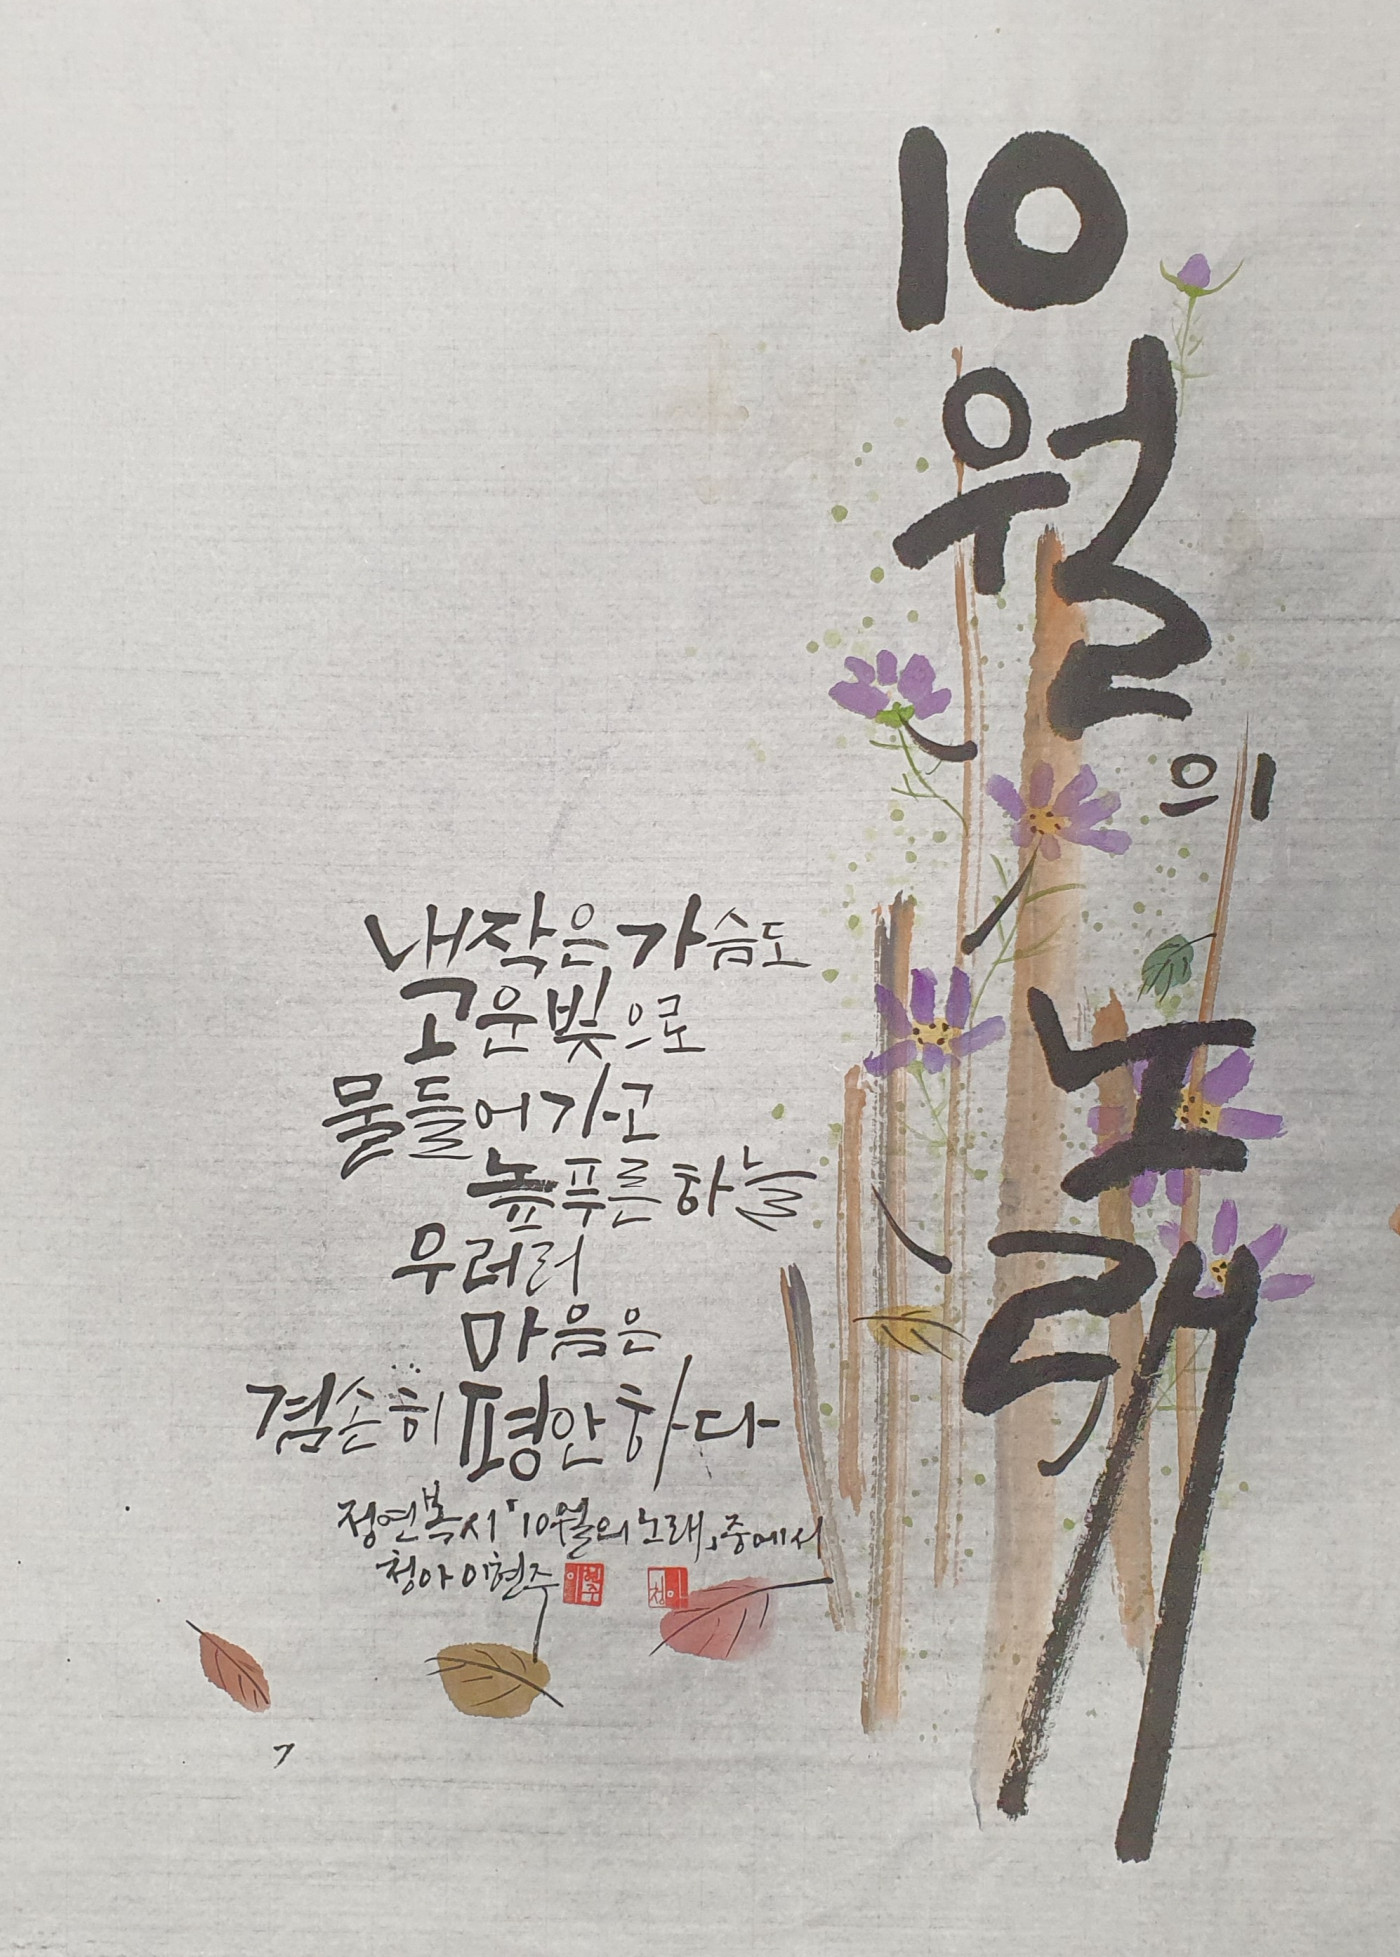 10
월
의
노
래
내 작은 가슴도
고운 빛으로
물들어 가고
높푸른 하늘
우러러
마음은
겸손히 평안하다
정연복 시 「10월의 노래」 중에서
청아 이현주
이현주
청아